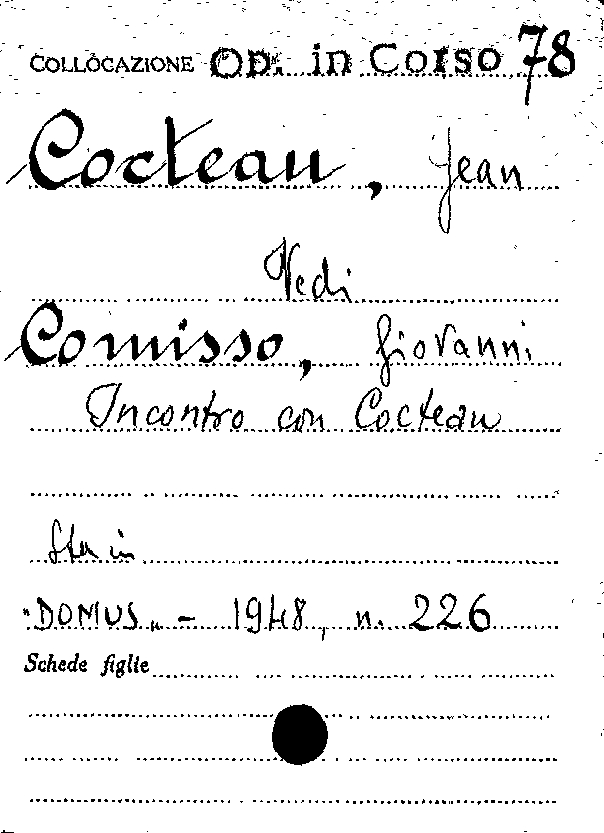 COLLOCAZIONE OP. in Corso 78
Cocteau, Jean
Vedi
Comisso, Giovanni
Incontro con Cocteau
Sta in
"DOMUS" - 1948, n. 226
Schede figlie